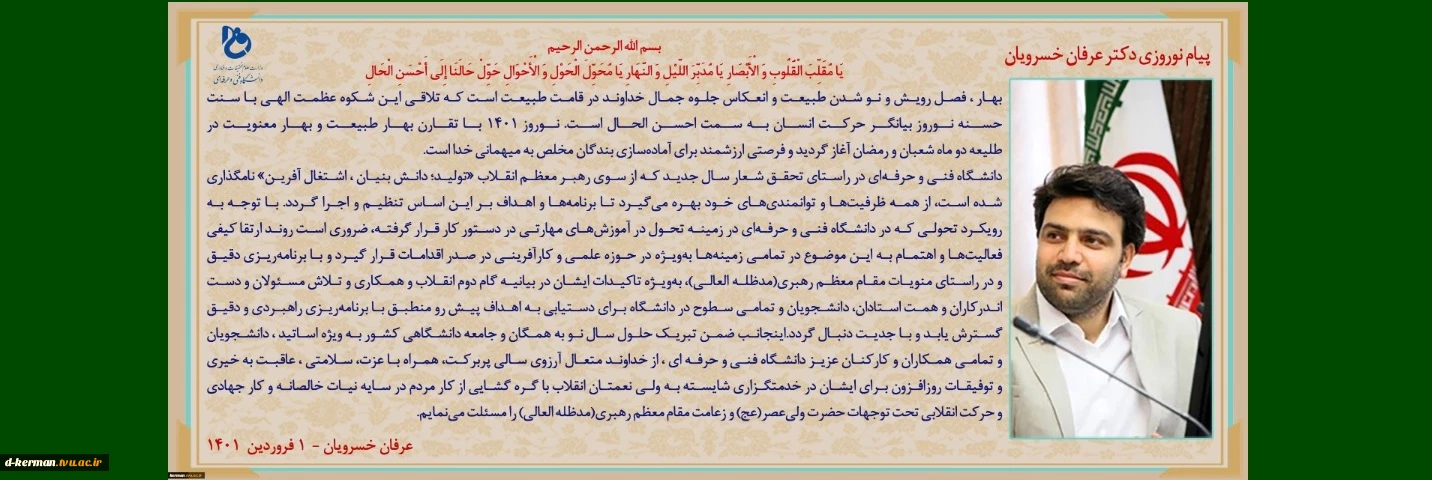 پیام نوروزی دکتر عرفان خسرویان
وزارت علوم، تحقیقات و فناوری
دانشگاه فنی و حرفه‌ای
بسم الله الرحمن الرحیم
يَا مُقَلِّبَ الْقُلُوبِ وَ الْأَبْصَارِ يَا مُدَبِّرَ اللَّيْلِ وَ النَّهَارِ يَا مُحَوِّلَ الْحَوْلِ وَ الْأَحْوَالِ حَوِّلْ حَالَنَا إِلَى أَحْسَنِ الْحَالِ
بهار ، فصل رویش و نو شدن طبیعت و انعکاس جلوه جمال خداوند در قامت طبیعت است که تلاقی این شکوه عظمت الهی با سنت
حسنه نوروز بیانگر حرکت انسان به سمت احسن الحال است. نوروز ۱۴۰۱ با تقارن بهار طبیعت و بهار معنویت در
طلیعه دو ماه شعبان و رمضان آغاز گردید و فرصتی ارزشمند برای آماده‌سازی بندگان مخلص به میهمانی خدا است.
دانشگاه فنی و حرفه‌ای در راستای تحقق شعار سال جدید که از سوی رهبر معظم انقلاب «تولید؛ دانش بنیان ، اشتغال آفرین» نامگذاری
شده است، از همه ظرفیت‌ها و توانمندی‌های خود بهره می‌گیرد تا برنامه‌ها و اهداف بر این اساس تنظیم و اجرا گردد. با توجه به
رویکرد تحولی که در دانشگاه فنی و حرفه‌ای در زمینه تحول در آموزش‌های مهارتی در دستور کار قرار گرفته، ضروری است روند ارتقا کیفی
فعالیت‌ها و اهتمام به این موضوع در تمامی زمینه‌ها به‌ویژه در حوزه علمی و کارآفرینی در صدر اقدامات قرار گیرد و با برنامه‌ریزی دقیق
و در راستای منویات مقام معظم رهبری(مدظله العالی)، به‌ویژه تاکیدات ایشان در بیانیه گام دوم انقلاب و همکاری و تلاش مسئولان و دست
اندرکاران و همت استادان، دانشجویان و تمامی سطوح در دانشگاه برای دستیابی به اهداف پیش رو منطبق با برنامه‌ریزی راهبردی و دقیق
گسترش یابد و با جدیت دنبال گردد.اینجانب ضمن تبریک حلول سال نو به همگان و جامعه دانشگاهی کشور به ویژه اساتید ، دانشجویان
و تمامی همکاران و کارکنان عزیز دانشگاه فنی و حرفه ای ، از خداوند متعال آرزوی سالی پربرکت، همراه با عزت، سلامتی ، عاقبت به خیری
و توفیقات روزافزون برای ایشان در خدمتگزاری شایسته به ولی نعمتان انقلاب با گره گشایی از کار مردم در سایه نیات خالصانه و کار جهادی
و حرکت انقلابی تحت توجهات حضرت ولی‌عصر(عج) و زعامت مقام معظم رهبری(مدظله العالی) را مسئلت می‌نمایم.
عرفان خسرویان - ۱ فروردین ۱۴۰۱
d-kerman.tvu.ac.ir
kerman.tvu.ac.ir